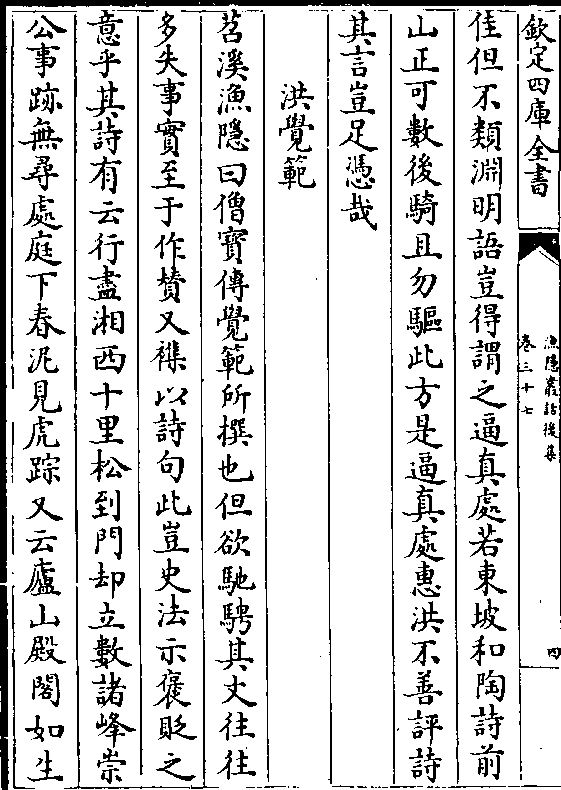 欽定四庫全書
漁隱叢話後集
卷三十七
四
佳但不類淵明語豈得謂之逼真處若東坡和陶詩前
山正可數後騎且勿驅此方是逼真處惠洪不善評詩
其言豈足憑哉
洪覺範
苕溪漁隱曰僧寶傳覺範所撰也但欲馳騁其文往往
多失事實至于作贊又襍以詩句此豈史法示褒貶之
意乎其詩有云行盡湘西十里松到門却立數諸峰崇
公事跡無尋處庭下春泥見虎踪又云廬山殿閣如生